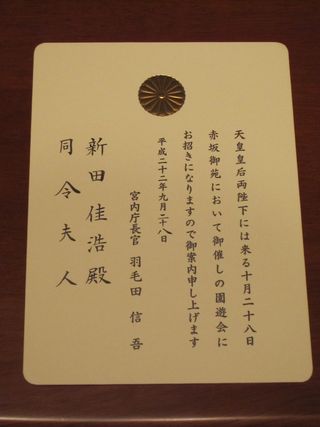 天皇皇后両陛下には来る十月二十八日
赤坂御苑において御催しの園遊会に
お招きになりますので御案内申し上げます
平成二十二年九月二十八日
宮内庁長官 羽毛田 信 吾
新田佳浩殿
同令夫人